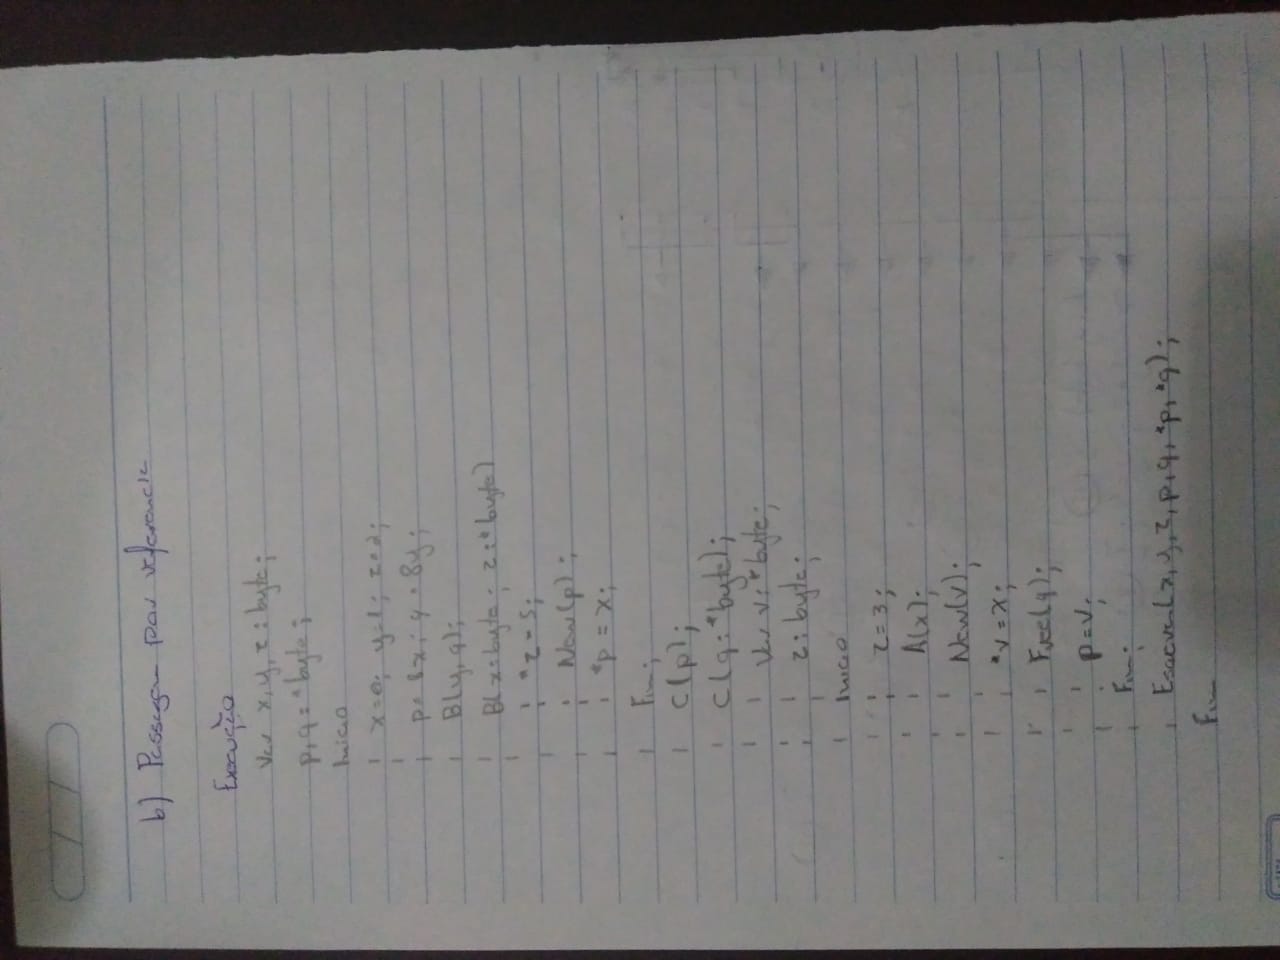 b) Passagem por referencia
Execução
Var x, y, z : byte;
p, q : *byte;
Inicio
x=0; y=1; z=2;
p= &x; q = &y;
B(y, q);
B(x:byte; z:*byte)
*z = 5;
New(p);
*p = x;
Fim;
C(p);
C(q:*byte);
Var v:*byte;
z: byte;
Inicio
z=3;
A(x);
New(v);
*v = x;
Free(q);
p=v;
Fim;
Escrever(x, y, z, p, q, *p, *q);
Fim